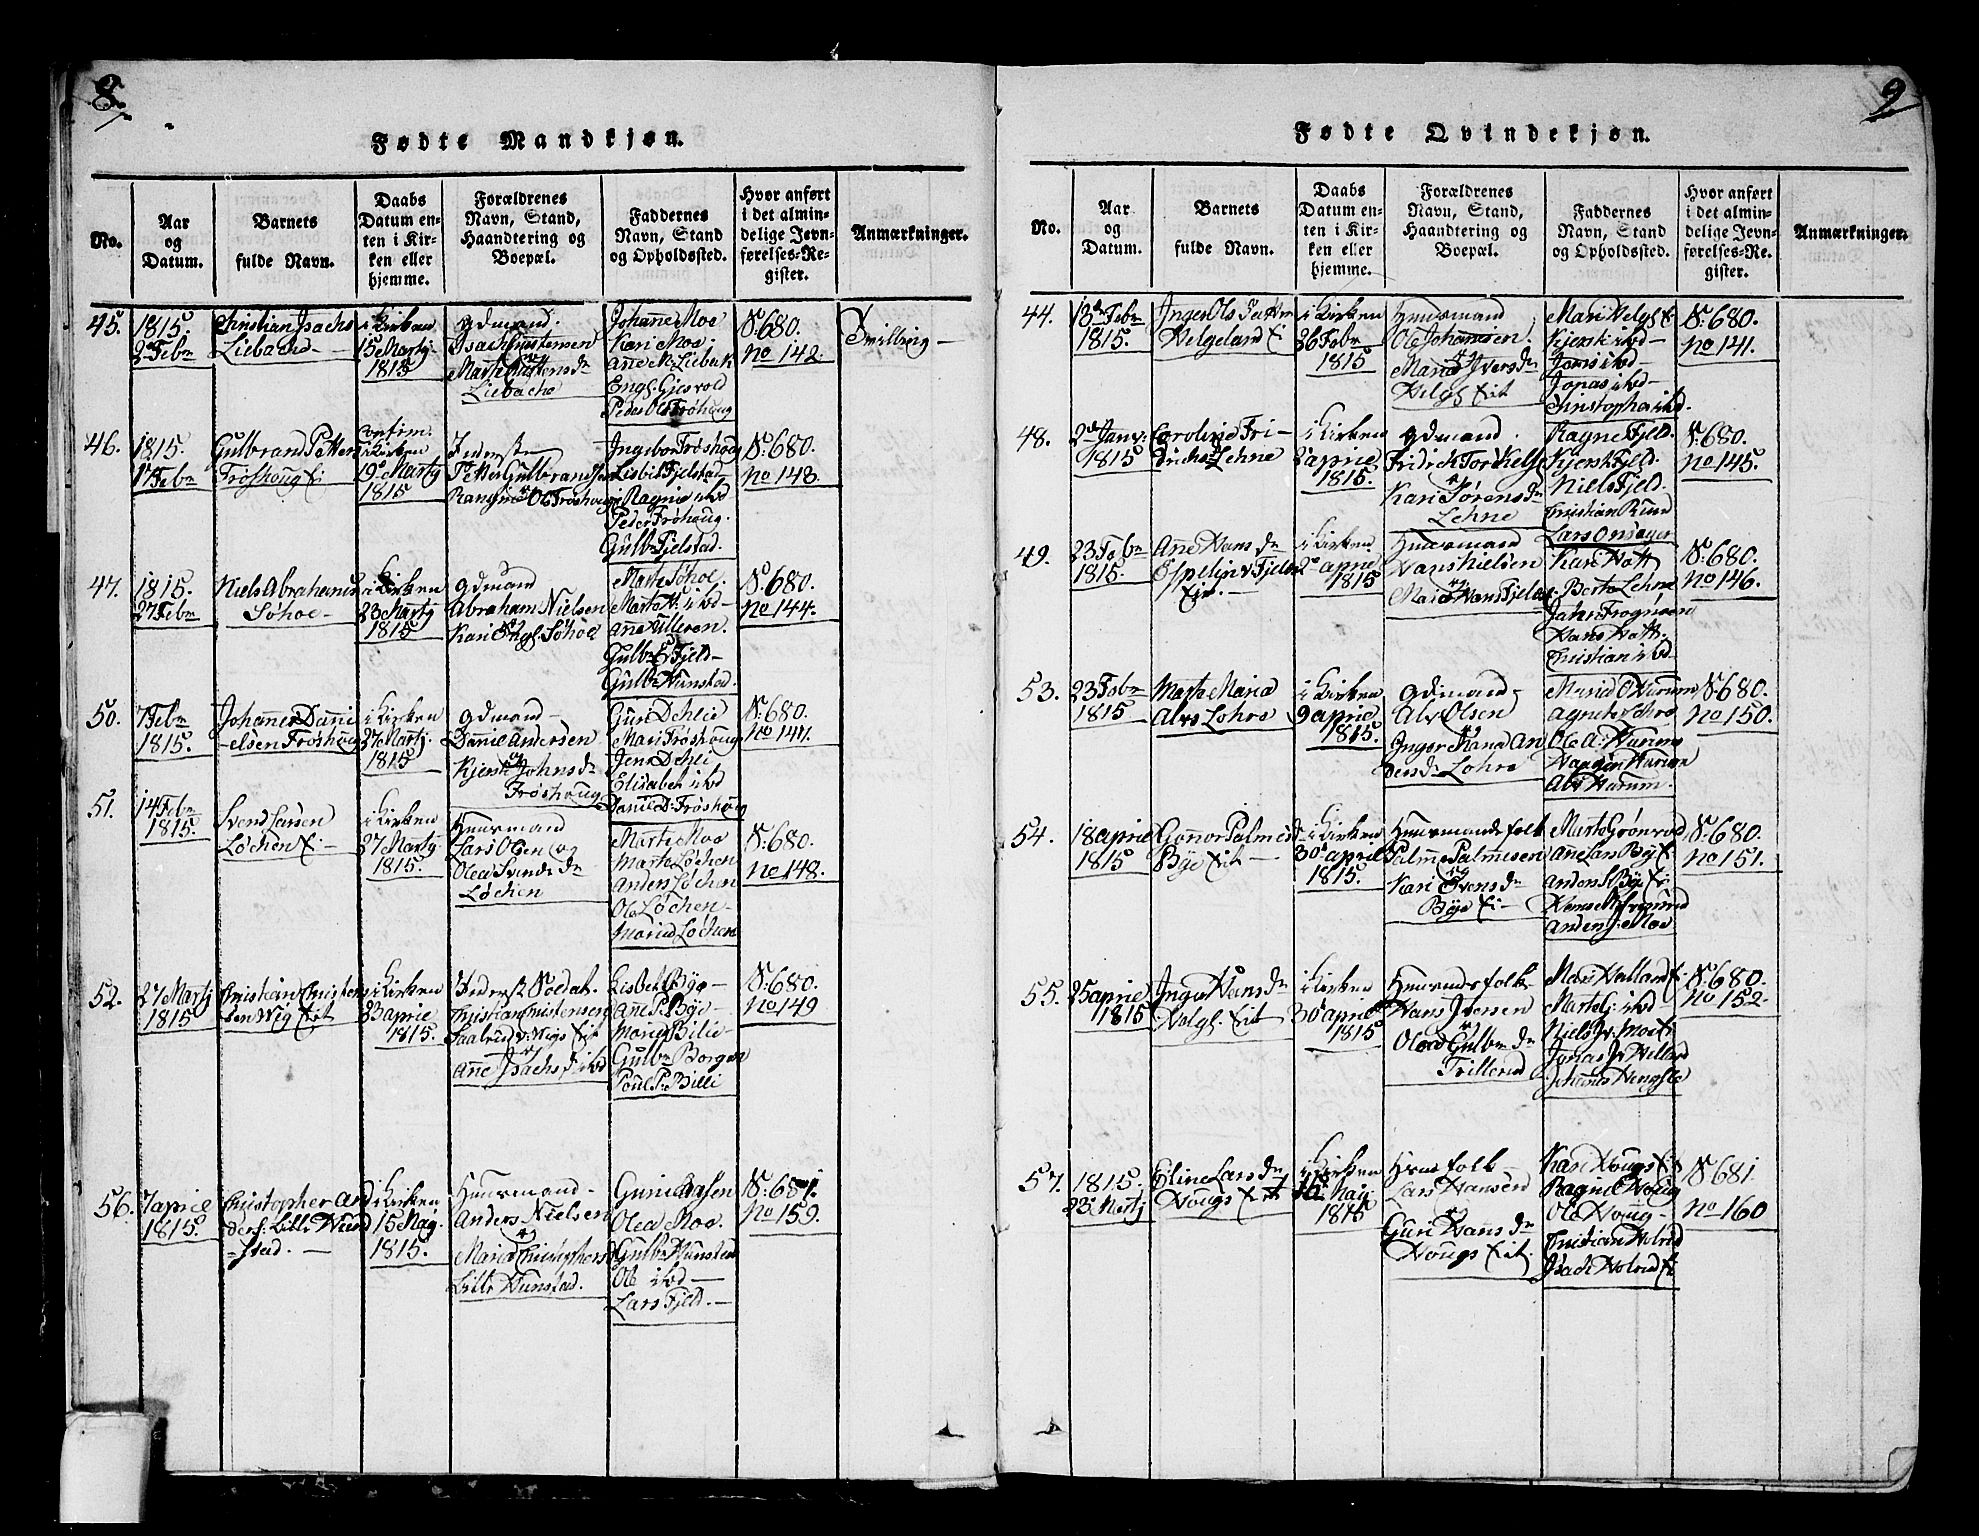 8.
Fødte Mandkjøn.
No.
Aar
og
Datum.
Barnets
fulde Navn.
Daabs
Datum en-
ten i Kir-
ken eller
hjemme.
Forældrenes
Navn, Stand,
Haandtering og
Boepæl.
Faddernes
Navn, Stand
og Opholdssted.
Hvor anført
i det almin-
delige Jevn-
førelses-Re-
gister.
Anmærkninger.
45.
1815.
2 Febr
Christian Isachs
Liebache
i Kirken
15 Martj
1815
Gdmand.
Isach Christensen
og
Liebache
Johanne Moe
Kari Moe.
Anne M. Liebak
Engl. Gjesvold
Peder Ols Frøshoug
S. 680.
No 142.
Tvilling
46.
1815.
17 Febr
Gulbrand Petter
Frøshoug Ei.
confirm.
i Kirken
19 Martj
1815
Inderste
Petter Gulbrandsen
Rangne Ols Frøshoug
Ingebor Frøshoug
Lisbet Fjelstad
Ragne ibd
Peder Frøshoug.
Gulbr Fjelstad.
S. 680.
No 143.
47.
1815.
27 Febr
Niels Abrahams
Søhoe
i Kirken
23 Martj
1815
Gdmand
Abraham Nielsen
og
Kari Engl. Søhoe
Marte Søhoe.
Marte N. ibd
Anne Ulleren.
Gulbr E. Fjeld
Gulbr Hunstad.
S: 680.
No 144.
50.
7 Febr
1815.
Johannes Dani
elsen Frøshoug
i Kirken
27 Martj.
1815
Gdmand
Daniel Andersen
og
Kjersti Johnsdr
Frøshoug
Guri Dehlie
Mari Frøshoug
Jens Dehli
Elisabet ibd
Daniel D: Frøshoug
S: 680.
No 147.
51.
14 Febr
1815.
Svend Larsen
Løchen Ei
i Kirken
27 Martj
1815.
Huusmand
Lars Olsen og
Olea Svends dr
Løchen
Marte Moe
Marte Løchen
Anders Løchen
Ole Løchen
Maria Løchen
S: 680.
No 148.
52.
27 Martj
1815
Christian Christen
sen Wig Eit
i Kirken
23 April
1815.
Inderst Soldat.
Christian Christensen
Anne Isachsd ibd
Lisbet Bye
Anne P. Bye
Gulbr Borgen
Poul P. Billi
S: 680.
No 149
56.
7 April
1815.
Christopher And
ders. Lille Hund
stad.
i Kirken
15 Maj
1815.
Huusmand
Anders Nielsen
og
Maria Christophersd
Lille Hunstad.
Guri Aasen
Olea Moe.
Gulbr Hunstad
Ole ibd
Lars Fjeld.
S: 681.
No 159.
9
Fødte Qvindekjøn.
No.
Aar
og
Datum.
Barnets
fulde Navn.
Daabs
Datum en-
ten i Kir-
ken eller
hjemme.
Forældrenes
Navn, Stand,
Haandtering og
Boepæl.
Faddernes
Navn, Stand
og Opholdssted.
Hvor anført
i det almin-
delige Jevn-
førelses-Re-
gister.
Anmærkninger.
44.
13 Febr
1815.
Helgeland Ei
i Kirken
26 Febr
1815
Huusmand
Ole Johannesen.
og
Maria Iversdr
Helgl Eit
Mari Helgl E
Kjersti ibd
Jens ibd
Jonas ibd
Christopher ibd.
S: 680.
No 141.
48.
2 Janv:
1815
Caroline Fri
drichs Lehne
i Kirken
2 April
1815.
Gdmand.
Fridrick Torkelse
og
Kari Sørensdr
Lehne
Ragne Fjeld.
Kjersti Fjeld.
Niels Fjeld.
Christian Ruud
Lars Onsager
S: 680.
No 145.
49.
23 Febr
1815.
Anne Hans dr
i Kirken
2 April
1815
Huusmand
Hans Nielsen
og
Kari Hott
Berte Lehne
Johs. Frogneren
Hans Hott.
Christian ibd
S: 680.
No 146.
53.
23 Febr
1815
Marte Maria
Alvs Lohre
i Kirken
9 April
1815.
Gdmand
Alv Olsen
og
Inger Maria An
dersdr Lohre
Maria O Harum
Agnete Lohre
Ole A: Harum
Haagen Harum
Alv Harum.
S: 680.
No 150.
54.
18 April
1815
Gonnor Palmesd
Bye Eit
i Kirken
30 April
1815.
Huusmandsfolk
Palme Palmesen
og
Kari Svensdr
Bye Ei
Marte Grønrud
Anne Lars Bye E:
Anders L Bye Ei
Anders J. Moe
S: 680.
No 151.
55.
25 April
1815
Inger Hans dr
Helgl. Eit
i Kirken
30 April
1815
Huusmdsfolk
Hans Iversen
og
Olea Gulbr dr
Trillerud
Mari Halland E:
Marte J. ibd
Niels Jv. Moe E.
Jonas Jv Helland
Johannes Hengsle
S: 680.
No 152
57.
1815.
23 Martj
Eline Lars dr
Hougs Eit
i Kirken
15 Maj
1815
Huusfolk
Lars Hansen
og
Guri Hans dr
Hougs Eit.
Kari Hougs Eit
Ragne Houg
Ole Houg
Christian Holrud
Isach Holrud Ei
S: 681.
No 160